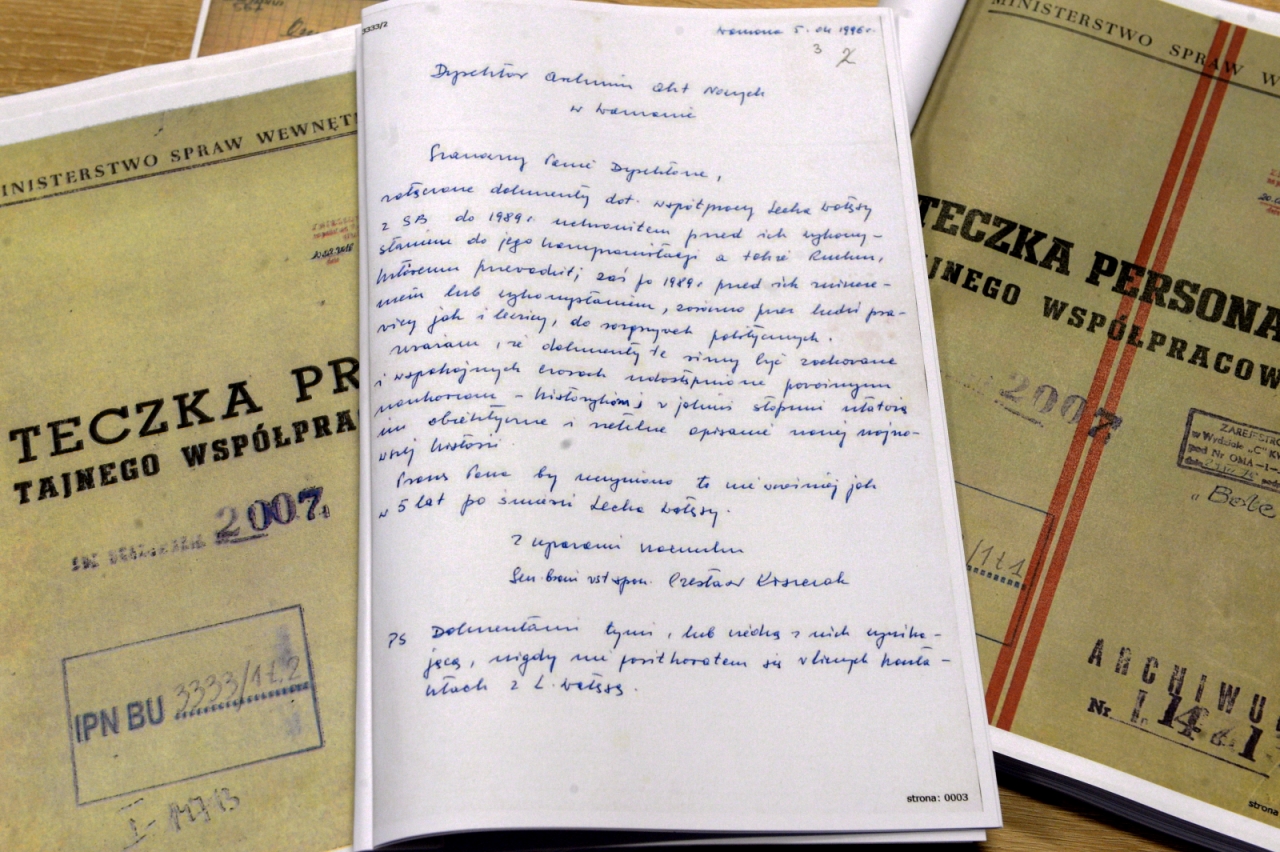 MINISTERSTWO SPRAW WEWNĘT
TECZKA PR
TAJNEGO WSPÓŁPRA
2007.
IPN BU 3333/1 t. 2
3333/2
Warszawa 5. 04 1996 r.
3 2
Dyrektor Archiwum Akt Nowych
w Warszawie
Szanowny Panie Dyrektorze,
załączone dokumenty dot. współpracy Lecha Wałęsy
z SB do 1989 r uchroniłem przed ich wykorzy-
staniem do jego kompromitacji a także Ruchu,
któremu przewodził; zaś po 1989 r przed ich zniszcze-
niem lub wykorzystaniem, zarówno przez ludzi pra-
wicy jak i lewicy, do rozgrywek politycznych.
Uważam, że dokumenty te winny być zachowane
i w spokojnych czasach udostępnione poważnym
naukowcom – historykom i w jakimś stopniu ułatwią
im obiektywne i rzetelne opisanie naszej najno-
wszej historii.
Proszę Pana by uczyniono to nie wcześniej jak
w 5 lat po śmierci Lecha Wałęsy.
Z wyrazami szacunku
Gen. broni w st. spocz. Czesław Kiszczak
PS Dokumentami tymi, lub wiedzą z nich wynika-
jącą, nigdy nie posiłkowałem się w licznych konta-
ktach z L. Wałęsą.
strona: 0003
MINISTERSTWO SPRAW W
TECZKA PERSONA
JNEGO WSPÓŁPRACOW
2007
ZAREJESTRO
w Wydziale „C" KW
pod Nr OMA-I-
„Bole
/1 t 1
ARCHIWU
Nr I 14
strona: